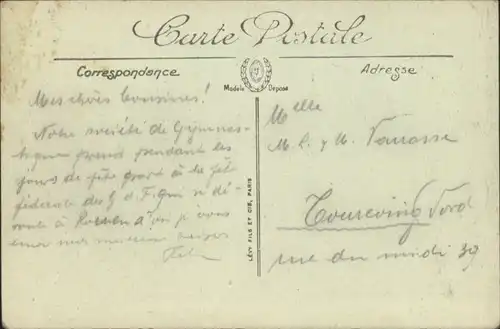 Carte Postale
Correspondance
Modèle Déposé
Adresse
Mes chères Cousines!
Notre société de Gymnas-
tique prend pendant les
jours de fête part à la fête
fédérale des qui se dé-
roule à d'où je vous
envoi mes meilleurs
LÉVY FILS ET CIE, PARIS
Melle
M. L. & M.
Tourcoing Nord
rue du midi 39